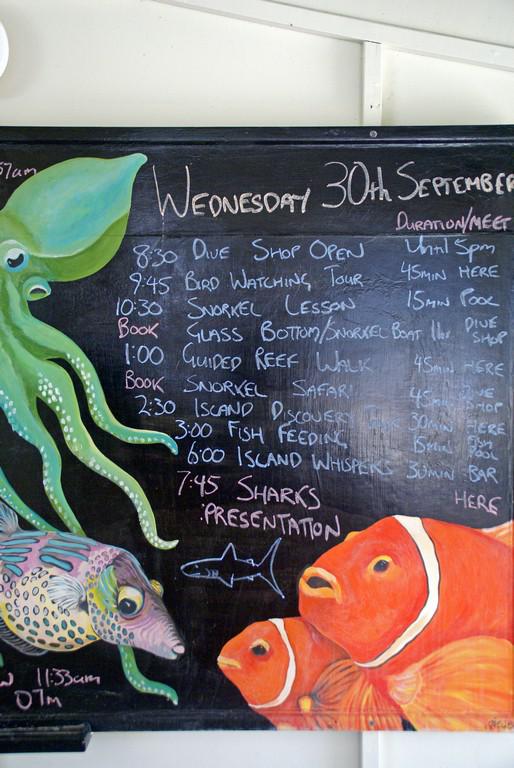 57am
WEDNESDAY 30th SEPTEMBER
DURATION/MEET
8:30 DIVE SHOP OPEN Until 5pm
9:45 BIRD WATCHING TOUR 45MIN HERE
10:30 SNORKEL LESSON 15MIN POOL
BOOK GLASS BOTTOM/SNORKEL BOAT 1hr DIVE SHOP
1:00 GUIDED REEF WALK 45MIN HERE
BOOK SNORKEL SAFARI 45MIN SHOP
2:30 ISLAND DISCOVERY 30MIN HERE
3:00 FISH FEEDING 15MIN POOL
6:00 ISLAND WHISPERS 30MIN BAR
7:45 SHARKS HERE
PRESENTATION
W 11:33am
07m